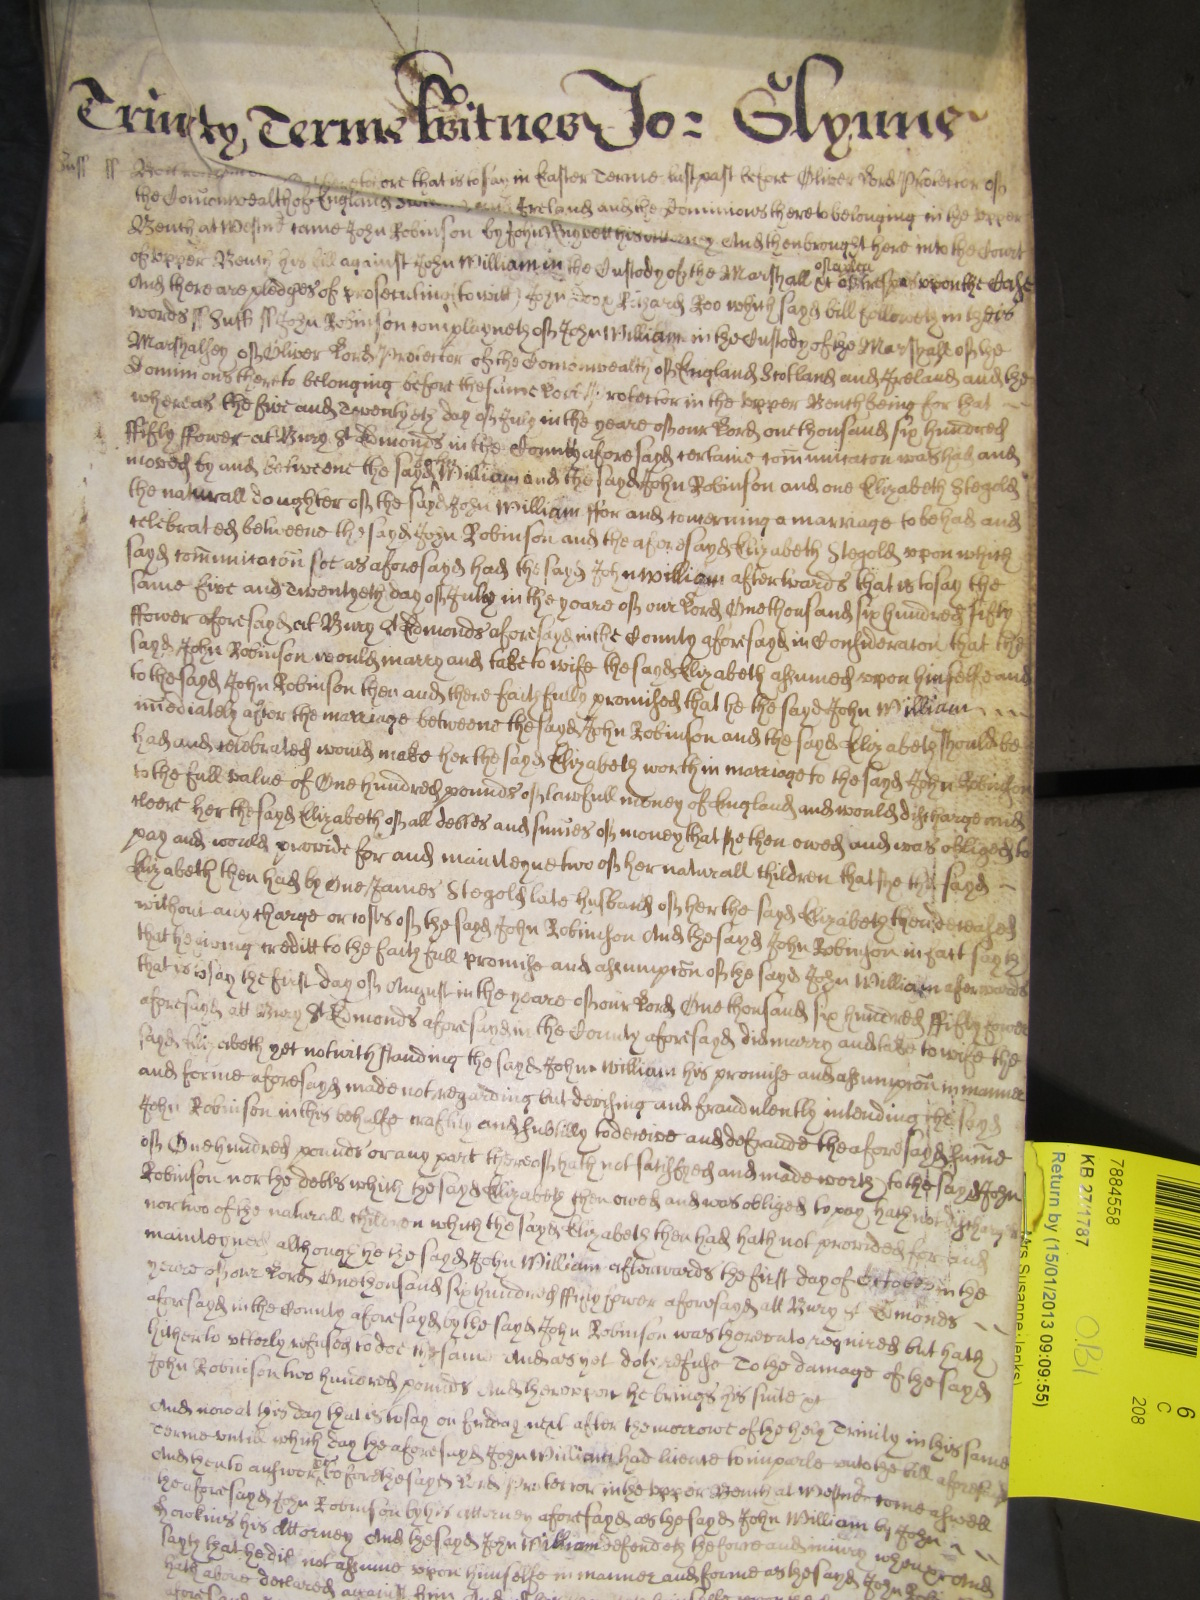 Trinity Terme Witnes Jo: Glynne
Suff ss that is to say in Easter Terme last past before Oliver Lord Protector of
the Comonwealth of England Ireland and the Dominions thereto belonging in the upper
Bench at Westmr came John Robinson by John his Attorney And then brought here into the Court
of upper Bench his bill against John William in the Custody of the Marshall &c of a plea of trespas upon the Case
And there are pledges of prosecuting (to witt) John Doo & Richard Roo which sayd bill followeth in these
words ss Suff ss John Robinson complayneth of John William in the Custody of the Marshall of the
Marshalsey of Oliver Lord Protector of the Comonwealth of England Scotland and Ireland and the
Dominions thereto belonging before the same Lord Protector in the upper Bench being for that
whereas the five and Twentyeth day of July in the yeare of our Lord one thousand six hundred
fifty ffower at Bury St Edmonds in the County aforesayd certaine comunicacon was had and
moved by and betweene the sayd John William and the sayd John Robinson and one Elizabeth Stegold
the naturall doughter of the sayd John William ffor and concerning a marriage to be had and
celebrated betweene the sayd John Robinson and the aforesayd Elizabeth Stegold upon which
sayd comunicacon soe as aforesayd had the sayd John William afterwards that is to say the
same five and Twentyeth day of July in the yeare of our Lord One thousand six hundred fifty
ffower aforesayd at Bury St Edmonds aforesayd in the County aforesayd in Consideracon that the
sayd John Robinson would marry and take to wife the sayd Elizabeth assumed upon himselfe and
to the sayd John Robinson then and there faithfully promised that he the sayd John William
imediately after the marriage betweene the sayd John Robinson and the sayd Elizabeth should be
had and celebrated would make her the sayd Elizabeth worth in marriage to the sayd John Robinson
to the full value of One hundred pounds of lawfull money of England and would discharge and
cleere her the sayd Elizabeth of all debtes and sumes of money that she then owed and was obliged to
pay and would provide for and mainteyne two of her naturall children that she the sayd
Elizabeth then had by One James Stegold late husband of her the sayd Elizabeth then deceased
without any charge or costs of the sayd John Robinson And the sayd John Robinson in fact sayth
that he giving creditt to the faithfull promise and assumpcon of the sayd John William afterwards
that is to say the first day of August in the yeare of our Lord One thousand six hundred ffifty fower
aforesayd att Bury St Edmonds aforesayd in the County aforesayd did marry and take to wife the
sayd Elizabeth yet notwithstanding the sayd John William his promise and assumpcon in manner
and forme aforesayd made not regarding but devising and fraudulently intending the sayd
John Robinson in this behalfe craftily and subtilly to deceive and defraude the aforesayd sume
of One hundred pounds or any part thereof hath not satisfyed and made worth to the sayd John
Robinson nor the debts which the sayd Elizabeth then owed and was obliged to pay hath not discharged
nor two of the naturall children which the sayd Elizabeth then had hath not provided for and
mainteyned although he the sayd John William afterwards the first day of October in the
yeare of our Lord One thousand six hundred ffifty fower aforesayd att Bury St Edmonds
aforesayd in the County aforesayd by the sayd John Robinson was thereunto required but hath
hitherto utterly refused to doe the same And as yet doth refuse To the damage of the sayd
John Robinson two hundred pounds And thereupon he brings his suite &c
And now at this day that is to say on friday next after the morrowe of the holy Trinity in this same
Terme untill which day the aforesayd John William had licence to imparle unto the bill aforesayd
And then to answer &c before the sayd Lord Protector in the upper Bench at Westmr come aswell
the aforesayd John Robinson by his attorney aforesayd as the sayd John William by John
Hawkins his Attorney And the sayd John William defendeth the force and iniury when &c And
sayth that he did not assume upon himselfe in manner and forme as the sayd John
hath above declared against him And
7884558
KB 271/787
Return by (15/01/2013 09:09:55)
Mrs Susanne Jenks)
O.B1
6
C
208